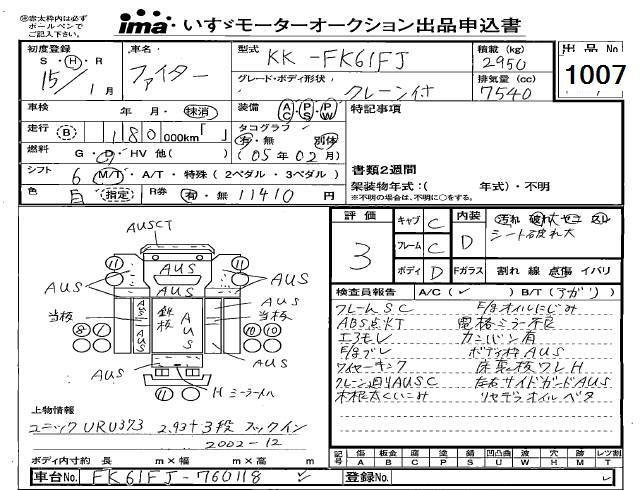 ※赤太枠内は必ず
ボールペンで
ご記入下さい。
ima いすゞモーターオークション出品申込書
初度登録 S・H・R 15/1月
車名 ファイター
型式 KK-FK61FJ
積載(kg) 2950
出品No 1007
グレード・ボディ形状 クレーン付
排気量(cc) 7540
車検 年 月・抹消
装備 AC・PS・PW
特記事項
走行 B 1180 000km「 」
タコグラフ 有・無 別体
燃料 G・D・HV 他( )
(05年02月)
書類2週間
シフト 6 M/T・A/T・特殊(2ペダル・3ペダル)
架装物年式:( 年式)・不明
※不明の場合は、不明に○をする。
色 白 指定 R券 有・無 11410円
評価 3
キャブ C
フレーム C
ボディ D
内装 D
シート破れ大
Fガラス 割れ 線 点傷 イバリ
AUSCT
11 11
AUS AUS AUS
AUS AUS
当板 鉄板 当板
AUS AUS AUS
8 10 10
AUS AUS
11 Hミラーメハ
検査員報告 A/C(✓) B/T(アガリ)
フレームSC
ABS点灯 電格ミラー不良
エアモレ カンバン有
ボディ枠AUS
ワイヤーキンク 床東板ワレH
クレーン廻りAUSC 左右サイドガードAUS
上物情報
ユニックURU373 2.93t3段フックイン
2002-12
記号 傷 板金 腐 塗 錆 凹凸曲 波 穴 跡 レツ割
A B C P S U W H M T
ボディ内寸約 長 m×幅 m×高 m
車台No. FK61FJ-760118 ✓
登録No.